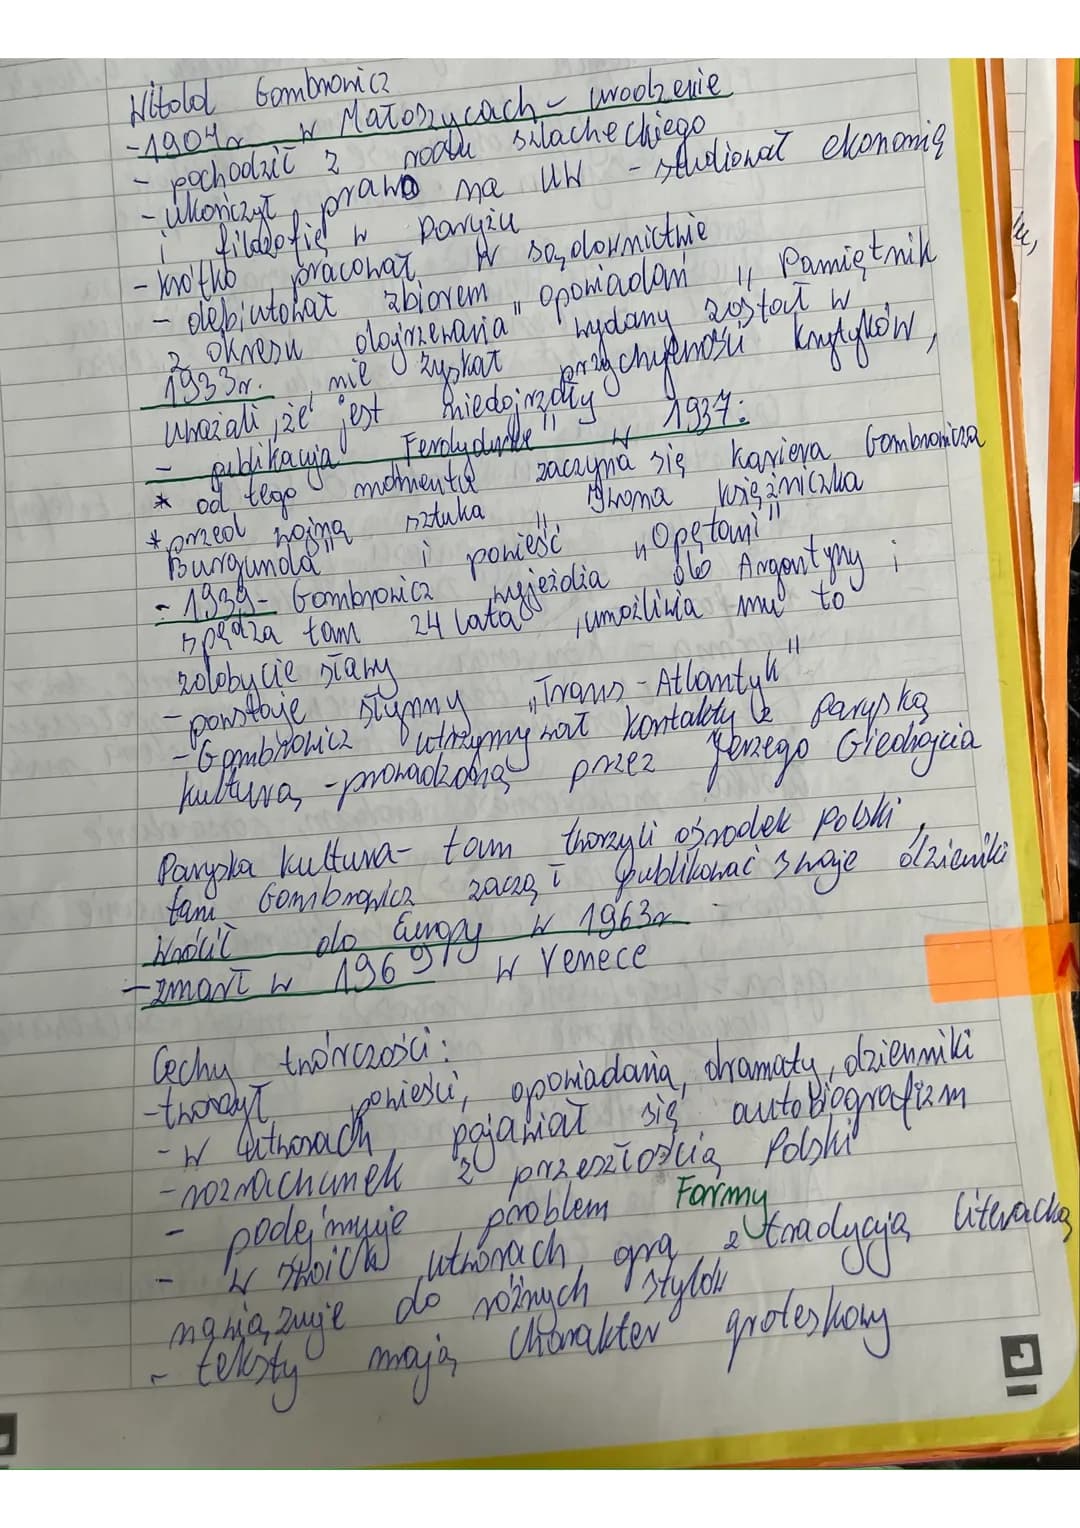 Witold Gombrowicz
-1904r w Małoszycach - urodzenie
- pochodził z rodu szlacheckiego
- ukończył prawo na UW - studiował ekonomię
i filozofię w Paryżu
- krótko pracował w sądownictwie
- debiutował zbiorem opowiadań "Pamiętnik
z okresu dojrzewania" wydany został w
1933r. nie zyskał przychylności krytyków,
uważali, że jest niedojrzały
- publikacja Ferdydurke" w 1937:
* od tego momentu zaczyna się kariera Gombrowicza
* przed wojną sztuka "Iwona księżniczka
Burgunda" i powieść "Opętani"
- 1939- Gombrowicz wyjeżdża do Argentyny i
spędza tam 24 lata, umożliwia mu to
zdobycie sławy
- powstaje słynny „Trans-Atlantyk"
- Gombrowicz utrzymywał kontakty z paryską
kulturą - prowadzoną przez Jerzego Giedrojcia
Paryska kultura- tam tworzyli ośrodek polski,
tam Gombrowicz zaczął publikować swoje dzienniki
Wrócił do Europy w 1963r
- zmarł w 1969r w Venece
Cechy twórczości:
- tworzył powieści, opowiadania, dramaty, dzienniki
- w utworach pojawiał się autobiografizm
- rozrachunek z przeszłością Polski
- podejmuje problem Formy
- w swoich utworach gra z tradycją literacką
nawiązuje do różnych stylów
- teksty mają charakter groteskowy